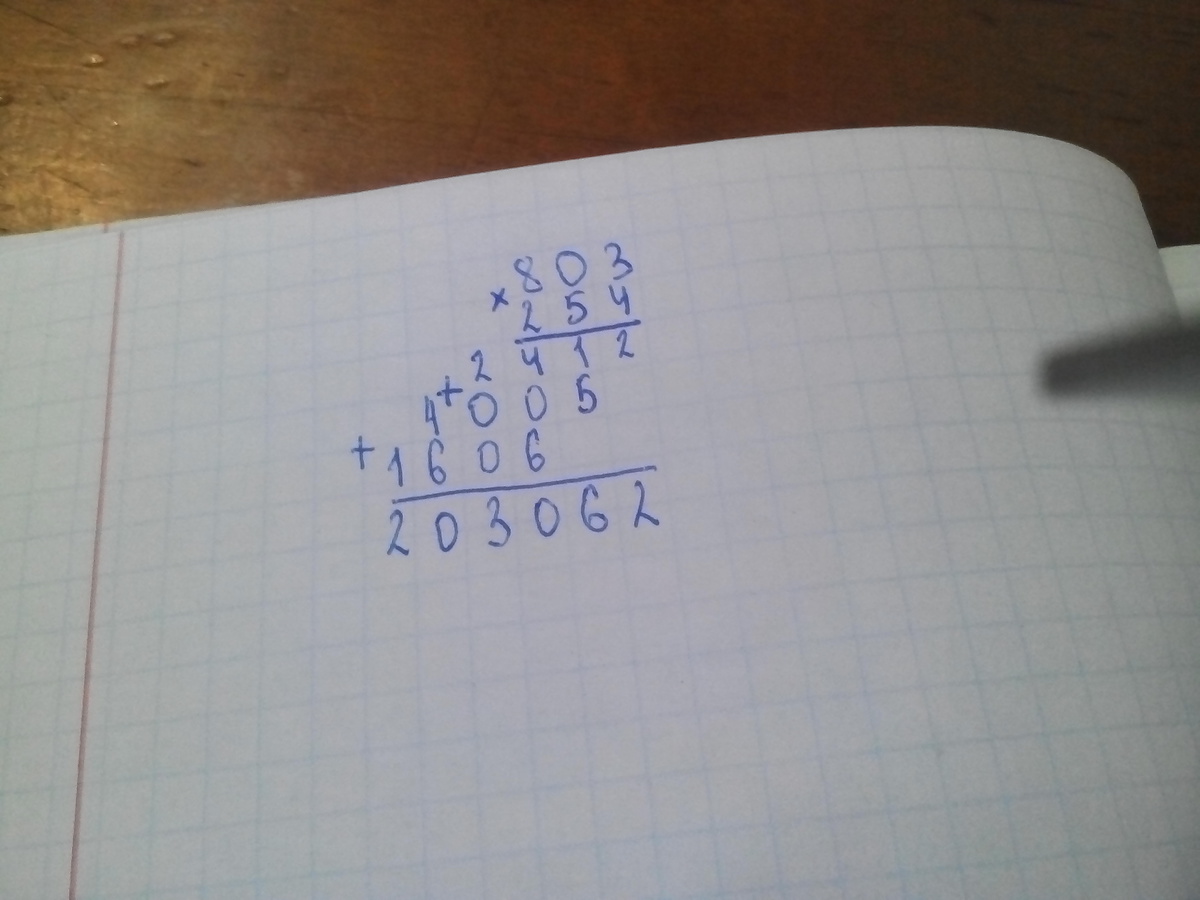 × 803
254
2412
+ 4005
+ 1606
203062